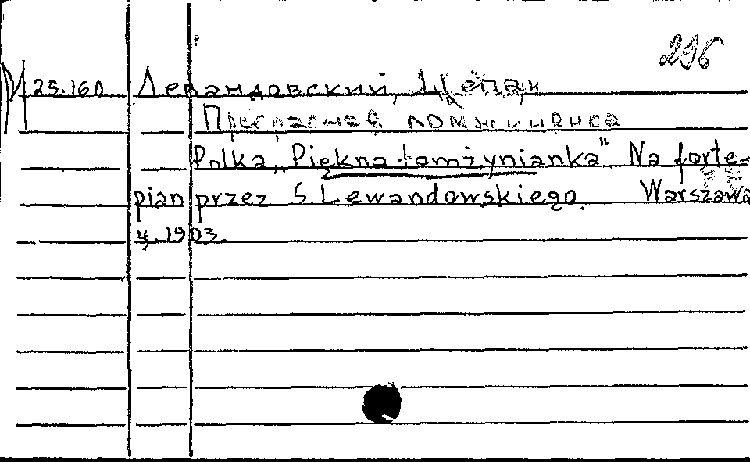 296
М 25.160 Левандовский, Щепан
Прекрасная ломжинянка
Polka „Piękna łomżynianka" Na forte-
pian przez S Lewandowskiego. Warszawa
4. 1903.